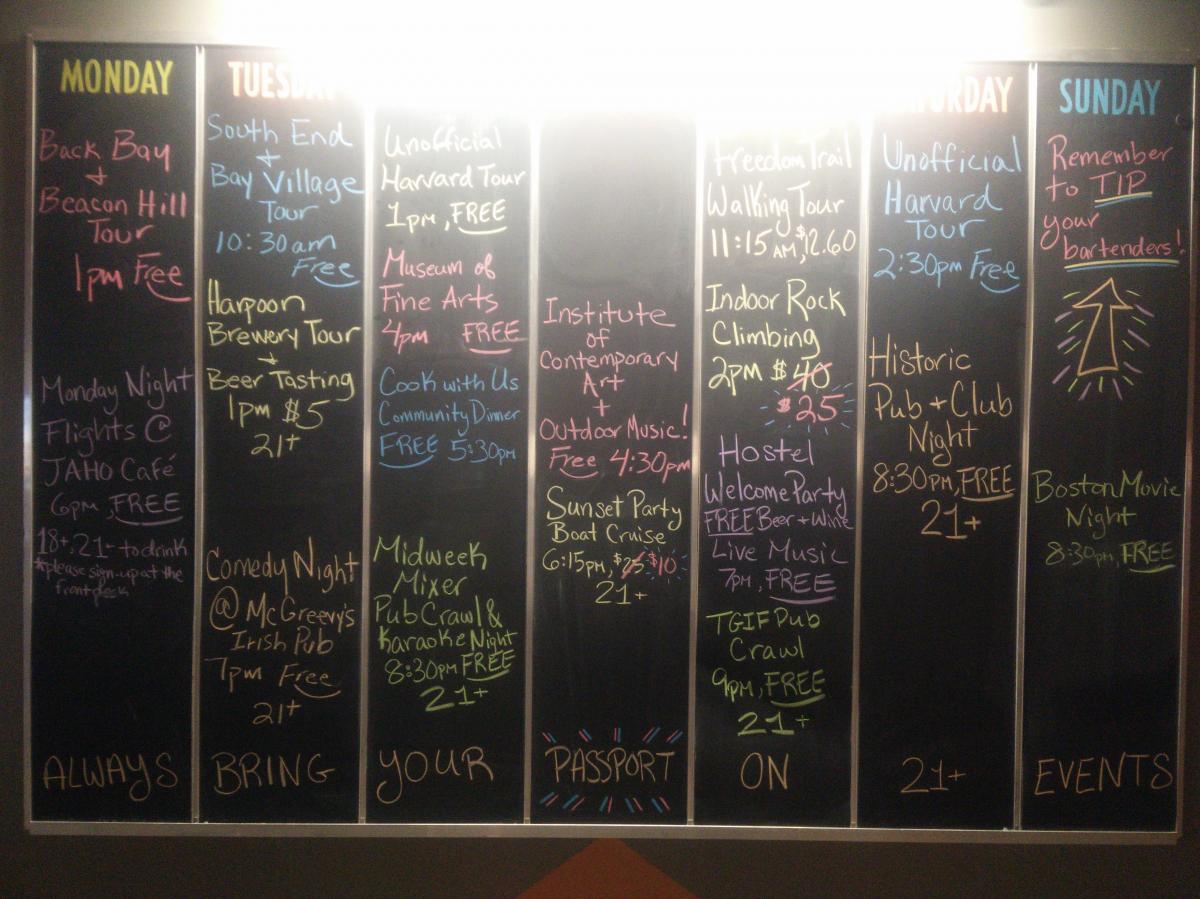 MONDAY
Back Bay
+
Beacon Hill
Tour
1pm Free
Monday Night
Flights @
JAHO Café
6pm, FREE
18+, 21+ to drink
*please sign-up at the
front desk
ALWAYS
TUESDAY
South End
+
Bay Village
Tour
10:30am
Free
Harpoon
Brewery Tour
+
Beer Tasting
1pm $5
21+
Comedy Night
@ McGreevy's
Irish Pub
7pm Free
21+
BRING
Unofficial
Harvard Tour
1pm, FREE
Museum of
Fine Arts
4pm FREE
Cook with Us
Community Dinner
FREE 5:30pm
Midweek
Mixer
Pub Crawl &
Karaoke Night
8:30pm FREE
21+
YOUR
Institute
of
Contemporary
Art
+
Outdoor Music!
Free 4:30pm
Sunset Party
Boat Cruise
6:15pm, $25 $10
21+
PASSPORT
Freedom Trail
Walking Tour
11:15 AM, $12.60
Indoor Rock
Climbing
2pm $40
$25
Hostel
Welcome Party
FREE Beer + Wine
Live Music
7pm, FREE
TGIF Pub
Crawl
9pm, FREE
21+
ON
SATURDAY
Unofficial
Harvard
Tour
2:30pm Free
Historic
Pub + Club
Night
8:30pm, FREE
21+
21+
SUNDAY
Remember
to TIP
your
bartenders!
Boston Movie
Night
8:30pm, FREE
EVENTS